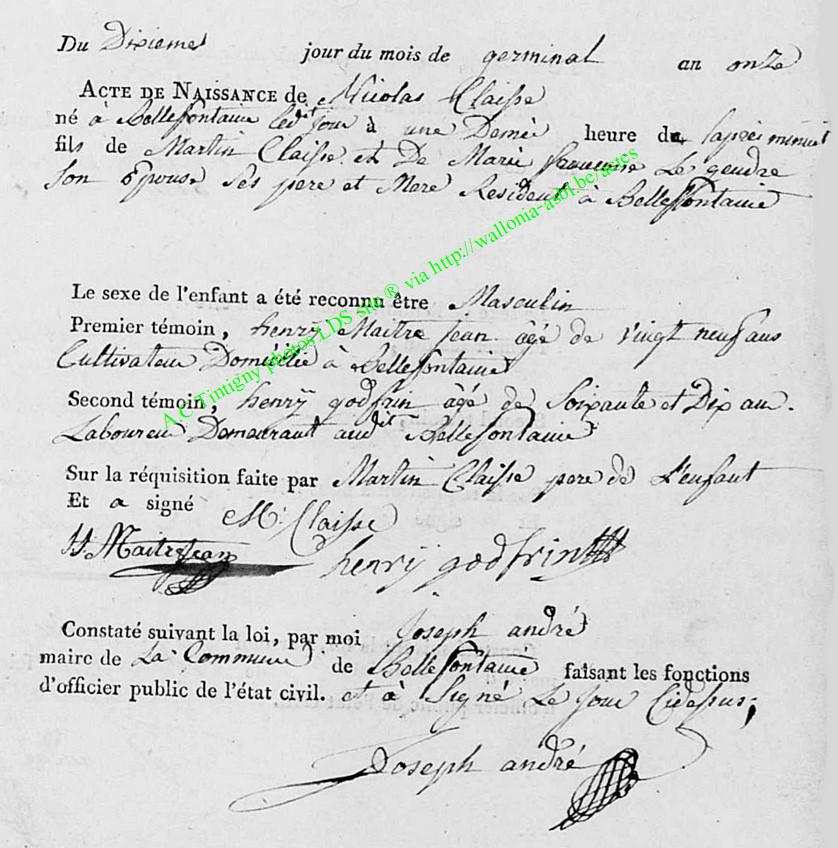 Du Dixieme jour du mois de germinal an onze
ACTE DE NAISSANCE de Nicolas Claisse
né à Bellefontaine ledit jour à une Demie heure de l'après minuit
fils de Martin Claisse et De Marie françoise Le gendre
son Epouse ses pere et Mere Resident à Bellefontaine
Le sexe de l'enfant a été reconnu être Masculin
Premier témoin, henry Maitre jean âgé de vingt neuf ans
Cultivateur Domicilié à Bellefontaine
Second témoin, henrÿ godfrin âgé de Soixante et Dix an.
Laboureur Demeurant audit Bellefontaine
Sur la réquisition faite par Martin Claisse pere de L'enfant
Et a signé M. Claisse
H Maitrejean henrÿ godfrin
Constaté suivant la loi, par moi Joseph andré
maire de La Commune de Bellefontaine faisant les fonctions
d'officier public de l'état civil. et à Signé Le Jour Cidessus,
Joseph andré
A.C Tintigny photos LDS site ® via http://wallonia-asbl.be/actes